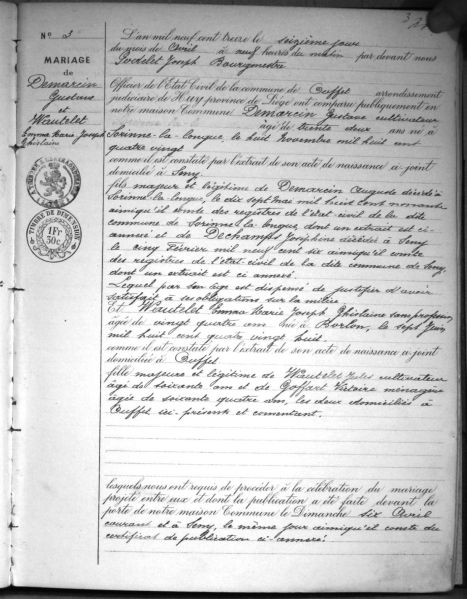 3
N° 3
MARIAGE
de
Demarcin
Gustave
et
Wautelet
Emma Marie Joseph
Ghislaine
TIMBRE DE DIMENSION
1 Fr
50 c
L'an mil neuf cent treize le seizième jour
du mois de Avril à neuf heures du matin par devant nous
Sodelet Joseph Bourgmestre
Officier de l'Etat Civil de la commune de Ouffet arrondissement
judiciaire de Huy province de Liège ont comparu publiquement en
notre maison Commune Demarcin Gustave cultivateur
âgé de trente deux ans né à
Sorinne-la-longue, le huit Novembre mil huit cent
quatre vingt
comme il est constaté par l'extrait de son acte de naissance ci-joint
domicilié à Seny
fils majeur et légitime de Demarcin Auguste décédé à
Sorinne la longue, le dix sept mai mil huit cent nonante
ainsi qu'il conste des registres de l'état civil de la dite
commune de Sorinne la longue, dont un extrait est ci-
annexé et de Dechamps Joséphine décédée à Seny
le cinq Février mil neuf cent six ainsi qu'il conste
des registres de l'état civil de la dite commune de Seny,
dont un extrait est ci annexé.
Lequel par son âge est dispensé de justifier d'avoir
satisfait à ses obligations sur la milice.
Et Wautelet Emma Marie Joseph Ghislaine sans profession,
âgée de vingt quatre ans née à Borlon, le sept Juin
mil huit cent quatre vingt huit
comme il est constaté par l'extrait de son acte de naissance ci-joint
domicilié à Ouffet
fille majeure et légitime de Wautelet Jules cultivateur
âgé de soixante ans et de Goffart Victoire ménagère
âgée de soixante quatre ans, les deux domiciliés à
Ouffet ici présents et consentant.
lesquels nous ont requis de procéder à la célébration du mariage
projeté entre eux et dont la publication a été faite devant la
porte de notre maison Commune le Dimanche six Avril
courant et à Seny, le même jour ainsi qu'il conste du
certificat de publication ci-annexé